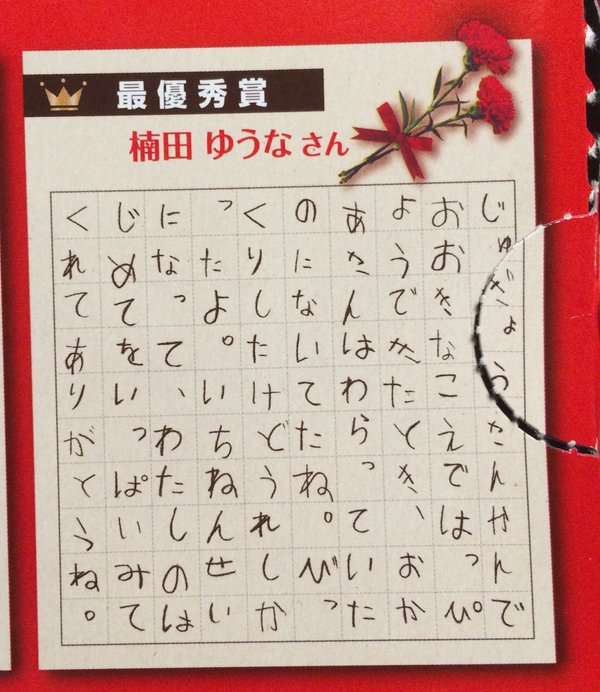 最優秀賞
楠田 ゆうな さん
じゅぎょうさんかんで
おおきなこえではっぴ
ょうできたとき、おか
あさんはわらっていた
のにないてたね。びっ
くりしたけどうれしか
ったよ。いちねんせい
になって、わたしのは
じめてをいっぱいみて
くれてありがとうね。